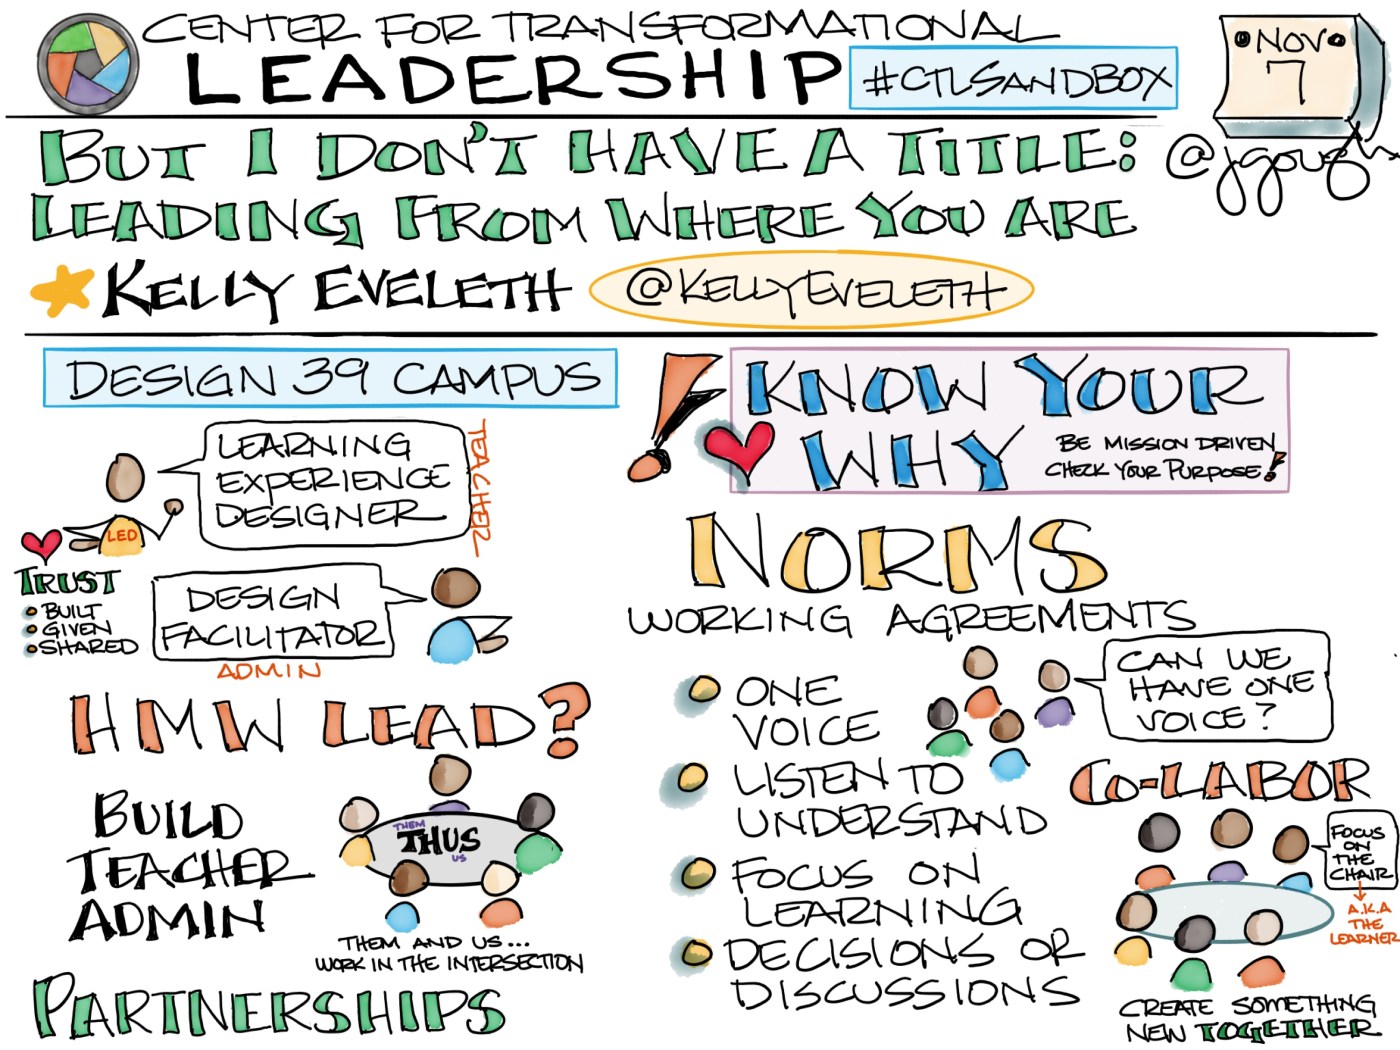 CENTER FOR TRANSFORMATIONAL
LEADERSHIP
#CTLSANDBOX
NOV
7
@jgough
BUT I DON'T HAVE A TITLE:
LEADING FROM WHERE YOU ARE
KELLY EVELETH
@KELLYEVELETH
DESIGN 39 CAMPUS
LEARNING
EXPERIENCE
DESIGNER
TEACHER
LED
TRUST
BUILT
GIVEN
SHARED
DESIGN
FACILITATOR
ADMIN
HMW LEAD?
BUILD
TEACHER
ADMIN
THEM
THUS
US
THEM AND US...
WORK IN THE INTERSECTION
PARTNERSHIPS
! KNOW YOUR
WHY
BE MISSION DRIVEN
CHECK YOUR PURPOSE!
NORMS
WORKING AGREEMENTS
ONE
VOICE
CAN WE
HAVE ONE
VOICE?
LISTEN TO
UNDERSTAND
FOCUS ON
LEARNING
DECISIONS OR
DISCUSSIONS
CO-LABOR
FOCUS
ON
THE
CHAIR
A.K.A
THE
LEARNER
CREATE SOMETHING
NEW TOGETHER